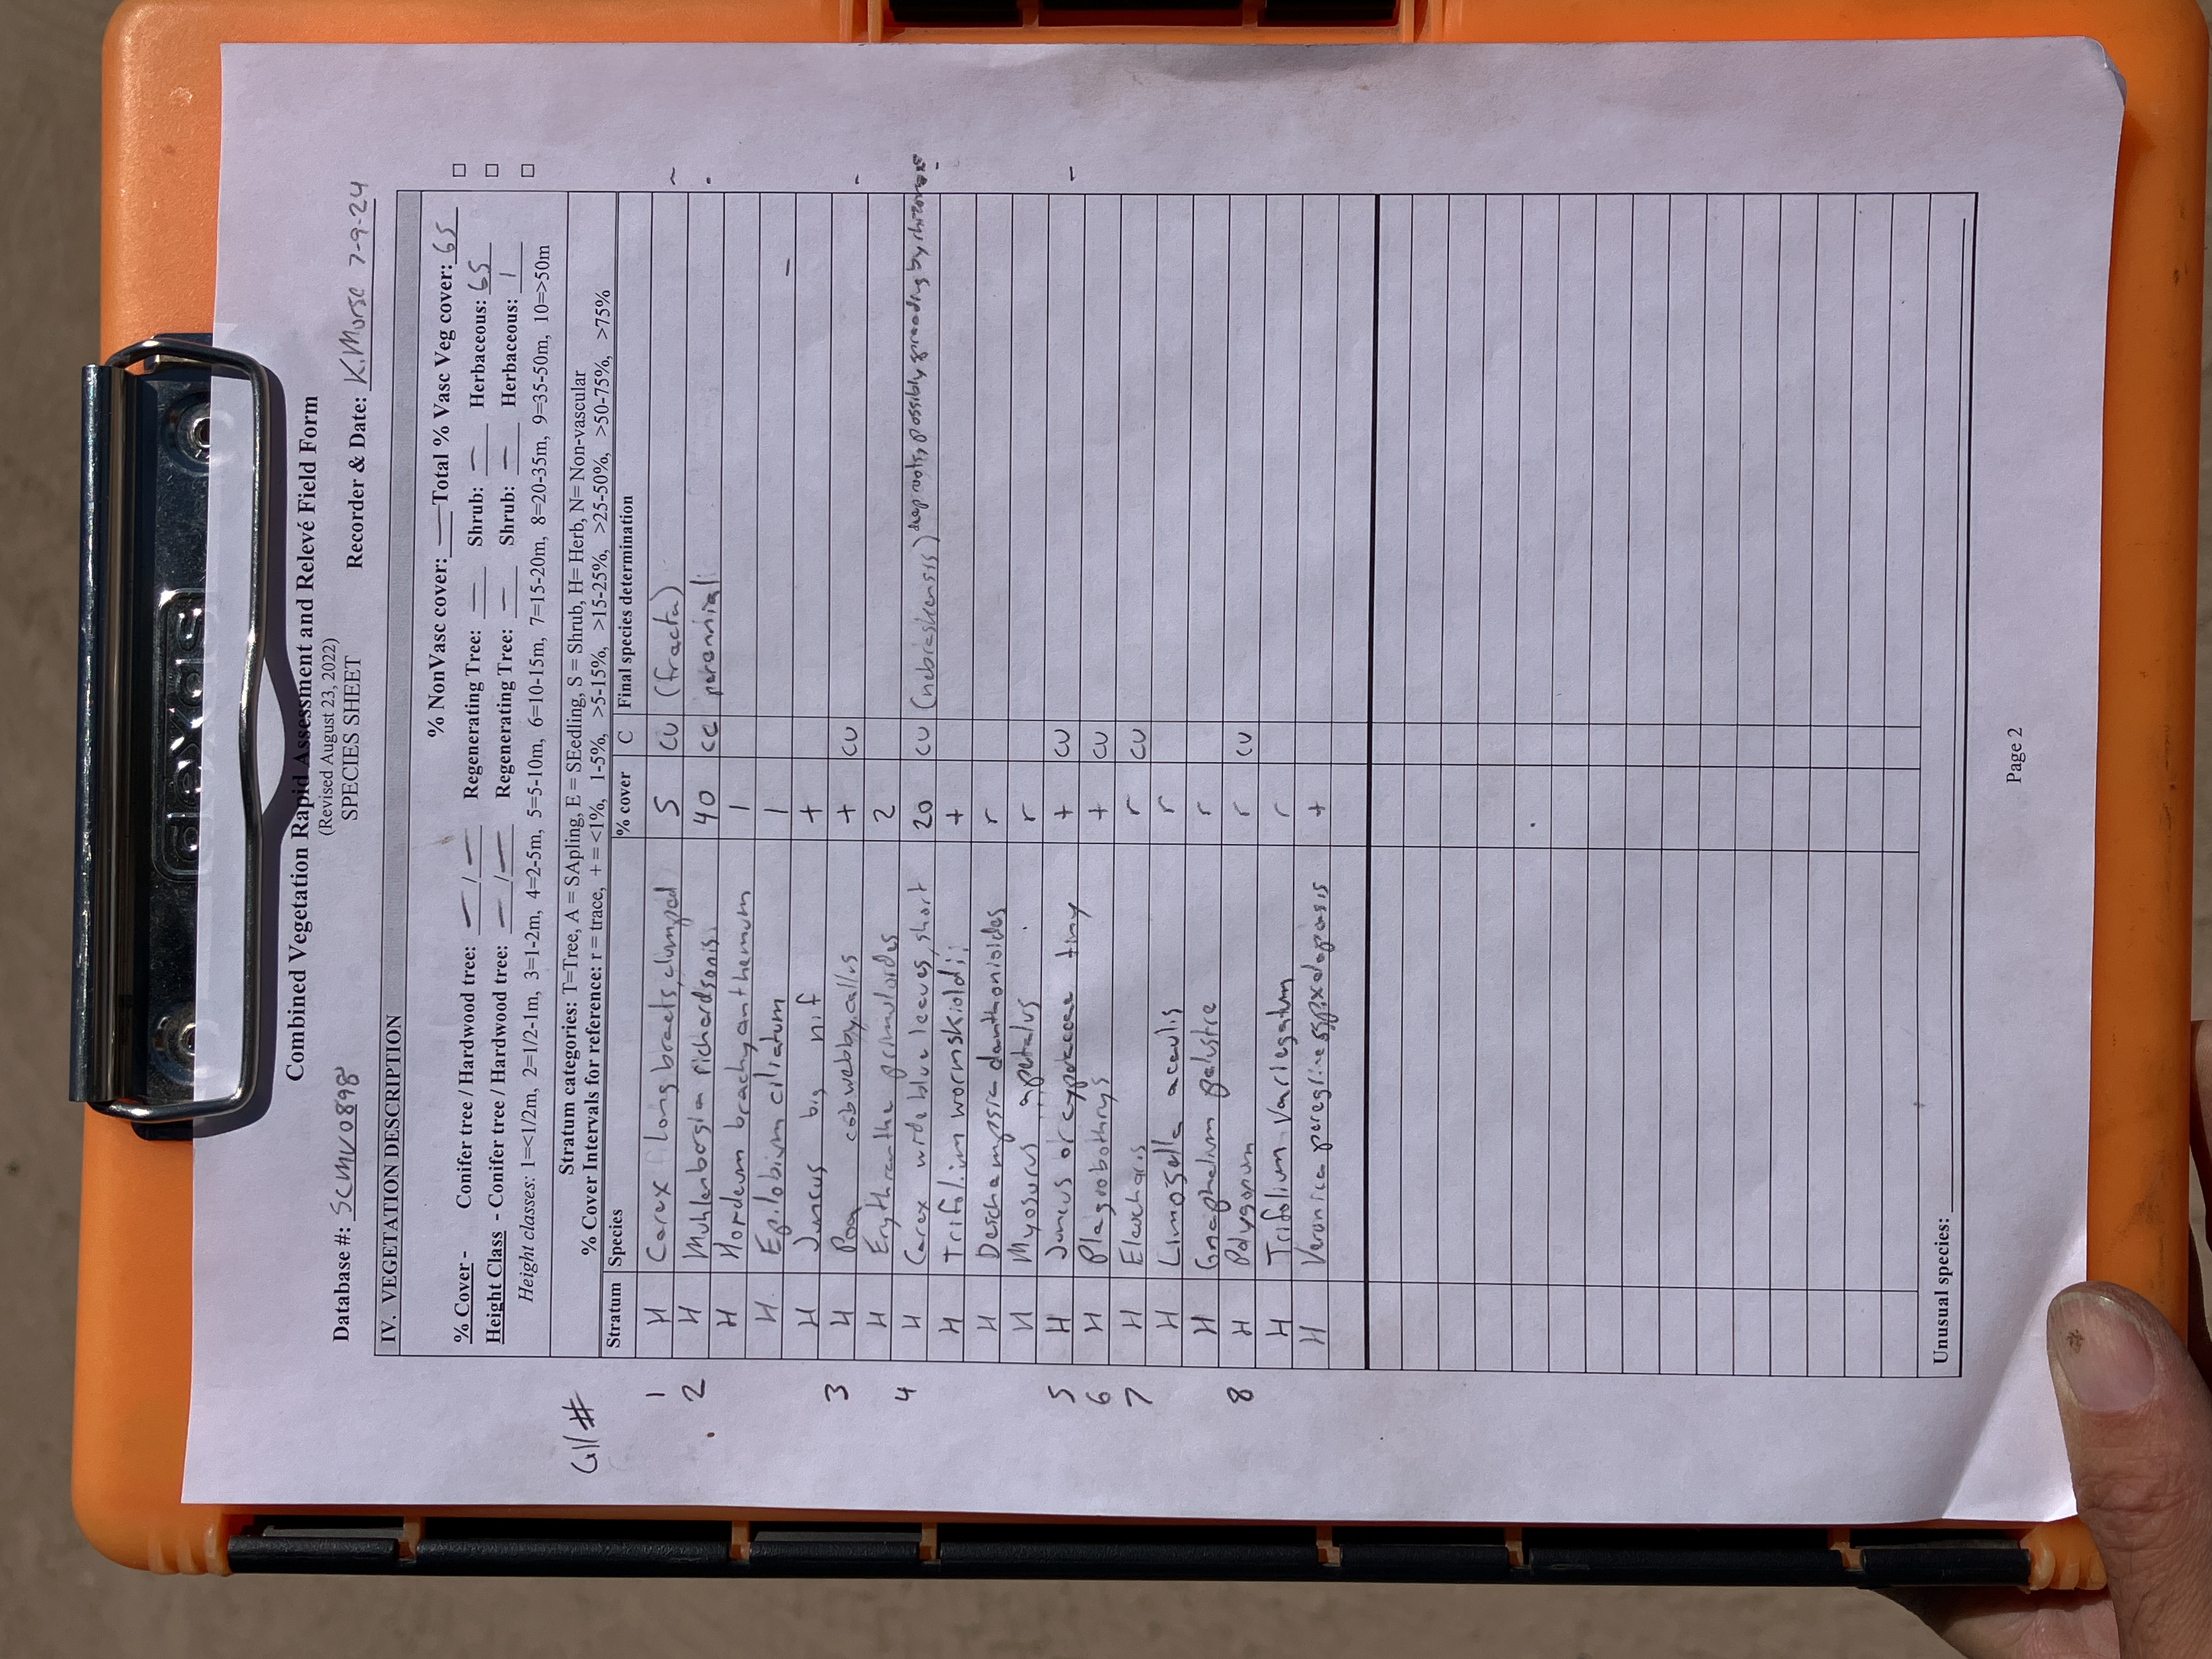 dexas
Combined Vegetation Rapid Assessment and Relevé Field Form
(Revised August 23, 2022)
SPECIES SHEET
Database #: SCMV0898 Recorder & Date: K.Morse 7-9-24
IV. VEGETATION DESCRIPTION
% NonVasc cover: — Total % Vasc Veg cover: 65 □
% Cover - Conifer tree / Hardwood tree: — / — Regenerating Tree: — Shrub: — Herbaceous: 65 □
Height Class - Conifer tree / Hardwood tree: — / — Regenerating Tree: — Shrub: — Herbaceous: 1 □
Height classes: 1=<1/2m, 2=1/2-1m, 3=1-2m, 4=2-5m, 5=5-10m, 6=10-15m, 7=15-20m, 8=20-35m, 9=35-50m, 10=>50m
Stratum categories: T=Tree, A = SApling, E = SEedling, S = Shrub, H= Herb, N= Non-vascular
% Cover Intervals for reference: r = trace, + = <1%, 1-5%, >5-15%, >15-25%, >25-50%, >50-75%, >75%
GH# Stratum Species % cover C Final species determination
1 H Carex long bracts, clumped 5 CU (fracta)
2 H Muhlenbergia richardsonis 40 CC perennial
H Hordeum brachyantherum 1
H Epilobium ciliatum 1 —
H Juncus big nif +
3 H Poa cobwebby callus + CU
H Erythranthe primuloides 2
4 H Carex wide blue leaves, short 20 CU (nebraskensis) deep roots, possibly spreading by rhizomes
H Trifolium wormskioldii +
H Deschampsia danthonioides r
H Myosurus apetalus r
5 H Juncus or cyperaceae tiny + CU
6 H Plagiobothrys + CU
7 H Eleocharis r CU
H Limosella acaulis r
H Gnaphalium palustre r
8 H Polygonum r CU
H Trifolium variegatum r
H Veronica peregrina ssp. xalapensis +
Unusual species:
Page 2